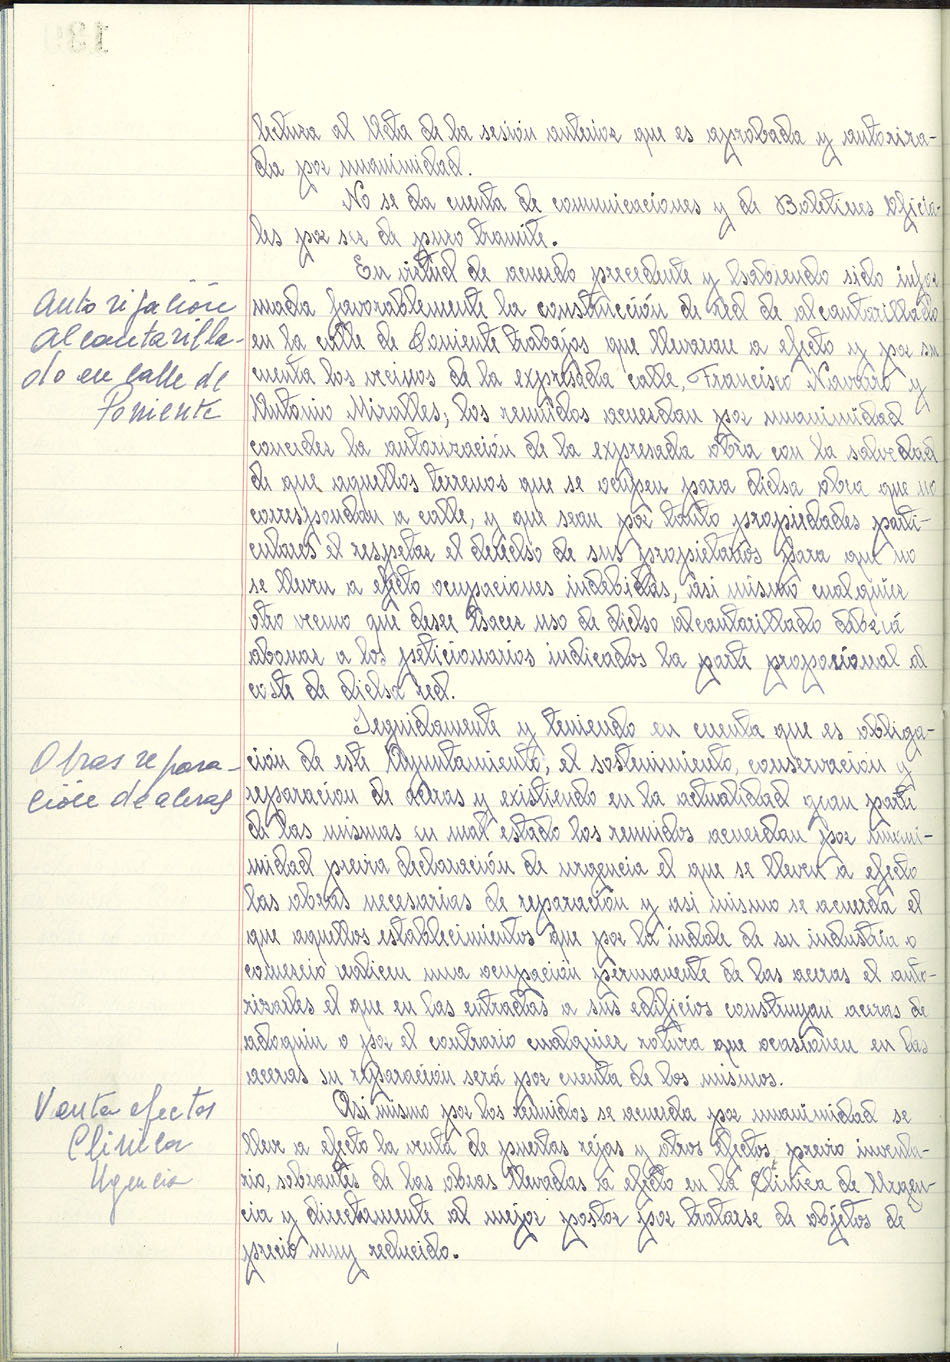 lectura al Acta de la sesión anterior que es aprobada y autoriza-
da por unanimidad.
No se da cuenta de comunicaciones y de Boletines Oficia-
les por ser de puro tramite.
Autorización
Alcantarilla-
do en calle de
Poniente
En virtud de acuerdo precedente y habiendo sido infor
mada favorablemente la construcción de red de alcantarillado
en la calle de Poniente trabajos que llevaran a efecto y por su
cuenta los vecinos de la expresada calle, Francisco Navarro y
Antonio Miralles; los reunidos acuerdan por unanimidad
conceder la autorización de la expresada obra con la salvedad
de que aquellos terrenos que se ocupen para dicha obra que no
correspondan a calle, y que sean por tanto propiedades parti-
culares el respetar el derecho de sus propietarios para que no
se lleven a efecto ocupaciones indebidas, asi mismo cualquier
otro vecino que desee hacer uso de dicho alcantarillado deberá
abonar a los peticionarios indicados la parte proporcional al
coste de dicha red.
Obras repara-
ción de aceras
Seguidamente y teniendo en cuenta que es obliga-
ción de este Ayuntamiento, el sostenimiento, conservación y
reparacion de aceras y existiendo en la actualidad gran parte
de las mismas en mal estado los reunidos acuerdan por unani-
midad previa declaración de urgencia el que se lleven a efecto
las obras necesarias de reparación y asi mismo se acuerda el
que aquellos establecimientos que por la indole de su industria o
comercio realicen una ocupación permanente de las aceras el auto-
rizarles el que en las entradas a sus edificios construyan aceras de
adoquin o por el contrario cualquier rotura que ocasionen en las
aceras su reparación será por cuenta de los mismos.
Venta efectos
Clinica
Urgencia
Asi mismo por los reunidos se acuerda por unanimidad se
lleve a efecto la venta de puertas rejas y otros efectos, previo inventa-
rio, sobrantes de las obras llevadas a efecto en la Clinica de Urgen-
cia y directamente al mejor postor por tratarse de objetos de
precio muy reducido.